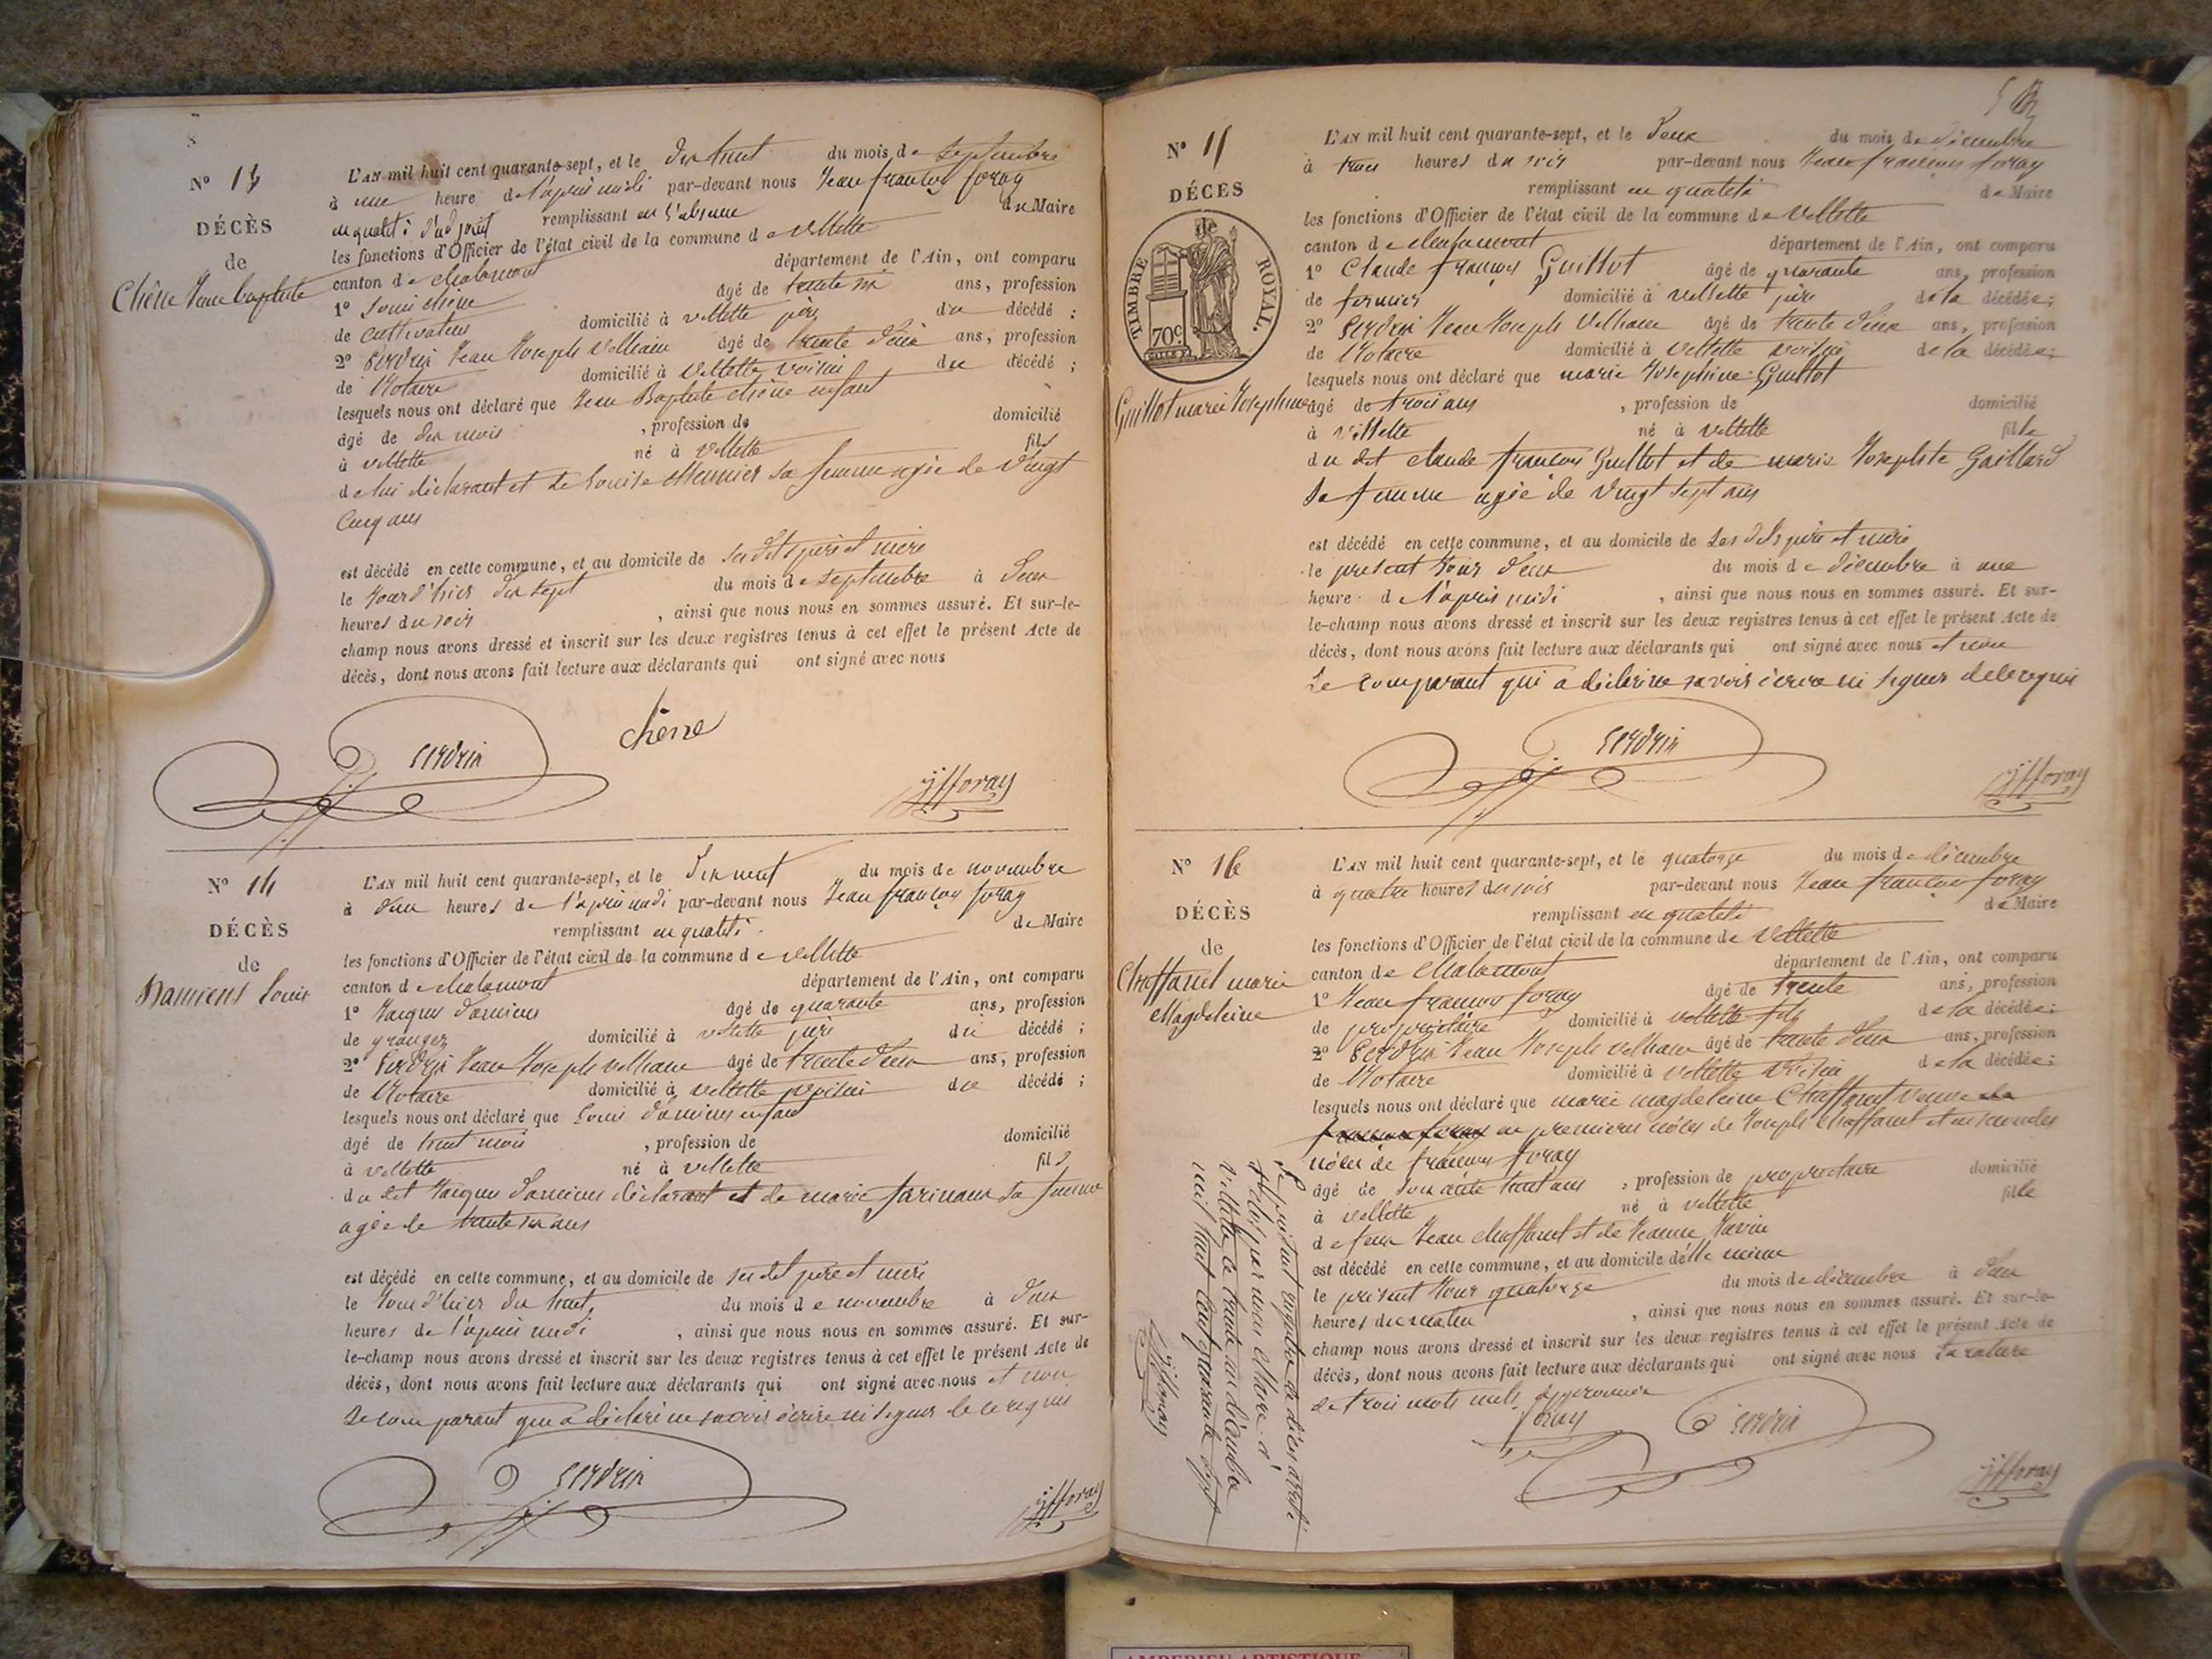 N° 13
DÉCÈS
de
Chêne Jean baptiste
L'AN mil huit cent quarante-sept, et le dix huit du mois de septembre
à une heure de l'après midi par-devant nous Jean françois foray
en qualité d'adjoint remplissant en l'absence du Maire
les fonctions d'Officier de l'état civil de la commune de villette
canton de chalamont département de l'Ain, ont comparu
1° Louis chêne âgé de trente six ans, profession
de cultivateur domicilié à villette père du décédé ;
2° Jean Joseph âgé de trente deux ans, profession
de Notaire domicilié à villette voisin du décédé ;
lesquels nous ont déclaré que Jean Baptiste chêne enfant
âgé de dix mois , profession de domicilié
à villette né à villette fils
de lui déclarant et de Louise Meunier sa femme agée de vingt
cinq ans
est décédé en cette commune, et au domicile de ses dits père et mère
le jour d'hier dix sept du mois de septembre à deux
heures du soir , ainsi que nous nous en sommes assuré. Et sur-le-
champ nous avons dressé et inscrit sur les deux registres tenus à cet effet le présent Acte de
décès, dont nous avons fait lecture aux déclarants qui ont signé avec nous
chêne
jffforay
N° 14
DÉCÈS
de
Damiens Louis
L'AN mil huit cent quarante-sept, et le dix neuf du mois de novembre
à deux heures de l'après midi par-devant nous Jean françois foray
remplissant en qualité de Maire
les fonctions d'Officier de l'état civil de la commune de villette
canton de chalamont département de l'Ain, ont comparu
1° Jacques damiens âgé de quarante ans, profession
de granger domicilié à villette père du décédé ;
2° Jean Joseph âgé de trente deux ans, profession
de Notaire domicilié à villette voisin du décédé ;
lesquels nous ont déclaré que Louis damiens enfant
âgé de huit mois , profession de domicilié
à villette né à villette fils
du dit Jacques damiens déclarant et de marie sa femme
agée de trente six ans
est décédé en cette commune, et au domicile de ses dit père et mère
le jour d'hier dix huit du mois de novembre à deux
heures de l'après midi , ainsi que nous nous en sommes assuré. Et sur-
le-champ nous avons dressé et inscrit sur les deux registres tenus à cet effet le présent Acte de
décès, dont nous avons fait lecture aux déclarants qui ont signé avec nous et non
le comparant qui a déclaré ne savoir écrire ni signer de ce requis
jffforay
N° 15
DÉCÈS
de
TIMBRE ROYAL.
70c
Guillot marie Josephine
L'AN mil huit cent quarante-sept, et le deux du mois de décembre
à trois heures du soir par-devant nous Jean françois foray
remplissant en qualité de Maire
les fonctions d'Officier de l'état civil de la commune de villette
canton de chalamont département de l'Ain, ont comparu
1° Claude françois Guillot âgé de quarante ans, profession
de fermier domicilié à villette père de la décédée;
2° Jean Joseph âgé de trente deux ans, profession
de Notaire domicilié à villette voisin de la décédée;
lesquels nous ont déclaré que marie Josephine Guillot
âgé de trois ans , profession de domicilié
à villette né à villette fille
du dit claude françois Guillot et de marie Josephte Gaillard
sa femme agée de vingt sept ans
est décédé en cette commune, et au domicile de ses dits père et mère
le présent jour deux du mois de décembre à une
heure de l'après midi , ainsi que nous nous en sommes assuré. Et sur-
le-champ nous avons dressé et inscrit sur les deux registres tenus à cet effet le présent Acte de
décès, dont nous avons fait lecture aux déclarants qui ont signé avec nous et non
le comparant qui a déclaré ne savoir écrire ni signer de ce requis
jffforay
N° 16
DÉCÈS
de
Chaffanel marie
Magdeleine
L'AN mil huit cent quarante-sept, et le quatorze du mois de décembre
à quatre heures du soir par-devant nous Jean françois foray
remplissant en qualité de Maire
les fonctions d'Officier de l'état civil de la commune de villette
canton de chalamont département de l'Ain, ont comparu
1° Jean françois foray âgé de trente ans, profession
de propriétaire domicilié à villette fils de la décédée;
2° Jean Joseph âgé de trente deux ans, profession
de Notaire domicilié à villette voisin de la décédée;
lesquels nous ont déclaré que marie magdeleine Chaffanel veuve
en premières nôces de Joseph Chaffanel et en secondes
nôces de françois foray
âgé de soixante huit ans , profession de propriétaire domicilié
à villette né à villette fille
de feu Jean chaffanel et de Jeanne
est décédé en cette commune, et au domicile d'elle même
le présent jour quatorze du mois de décembre à deux
heures du matin , ainsi que nous nous en sommes assuré. Et sur-le-
champ nous avons dressé et inscrit sur les deux registres tenus à cet effet le présent Acte de
décès, dont nous avons fait lecture aux déclarants qui ont signé avec nous la rature
de trois mots nuls approuvée
foray
jffforay
Le présent registre a été arrêté
et clos par nous Maire de
villette le trente un décembre
mil huit cent quarante sept
jffforay
AMBERIEU ARTISTIQUE